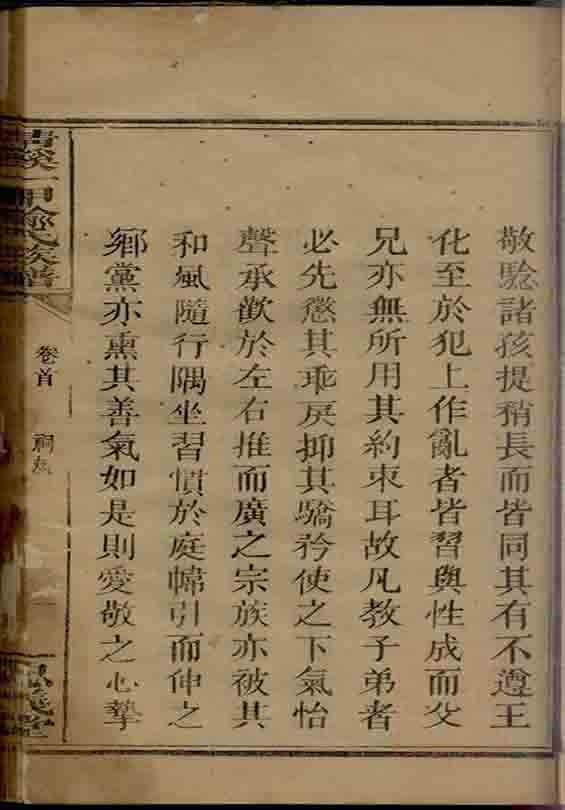 敬騐諸孩提稍長而皆同其有不遵王
化至於犯上作亂者皆習與性成而父
兄亦無所用其約束耳故凡教子弟者
必先懲其乖戾抑其驕矜使之下氣怡
聲承歡於左右推而廣之宗族亦被其
和風隨行隅坐習慣於庭幃引而伸之
鄉黨亦熏其善氣如是則愛敬之心摯
一甲俞氏族譜
卷首
祠規
義堂